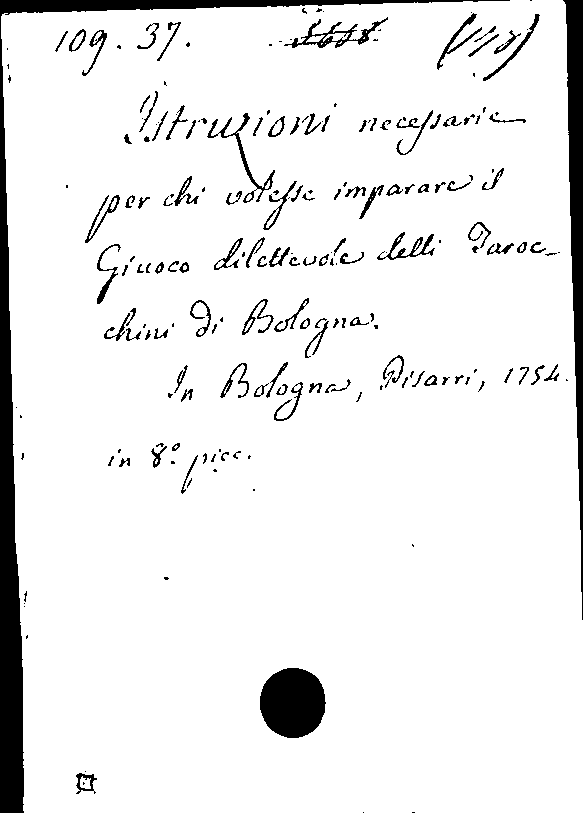 109. 37.
Istruzioni necessarie
per chi volesse imparare il
Giuoco dilettevole delli Taroc-
chini di Bologna.
In Bologna, Pisarri, 1754.
in 8.° picc.